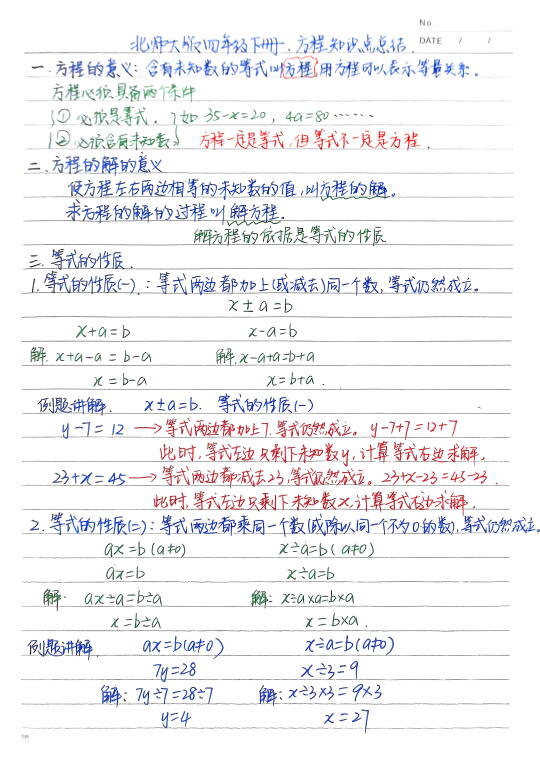 No
DATE / /
北师大版四年级下册.方程知识点总结.
一.方程的意义:含有未知数的等式叫方程,用方程可以表示等量关系。
方程必须具备两个条件
① 必须是等式. 如 35-x=20, 4a=80……
② 必须含有未知数 方程一定是等式,但等式不一定是方程.
二.方程的解的意义
使方程左右两边相等的未知数的值,叫方程的解。
求方程的解的过程叫解方程。
解方程的依据是等式的性质
三.等式的性质.
1.等式的性质(一):等式两边都加上(或减去)同一个数,等式仍然成立。
x±a=b
x+a=b x-a=b
解.x+a-a=b-a 解.x-a+a=b+a
x=b-a x=b+a.
例题讲解. x±a=b. 等式的性质(一)
y-7=12 →等式两边都加上7,等式仍然成立。y-7+7=12+7
此时,等式左边只剩下未知数y,计算等式右边求解.
23+x=45→等式两边都减去23,等式仍然成立。23+x-23=45-23.
此时,等式左边只剩下未知数x,计算等式右边求解.
2.等式的性质(二):等式两边都乘同一个数(或除以同一个不为0的数),等式仍然成立。
ax=b(a≠0) x÷a=b(a≠0)
ax=b x÷a=b
解: ax÷a=b÷a 解: x÷a×a=b×a
x=b÷a x=b×a.
例题讲解. ax=b(a≠0) x÷a=b(a≠0)
7y=28 x÷3=9
解:7y÷7=28÷7 解:x÷3×3=9×3
y=4 x=27